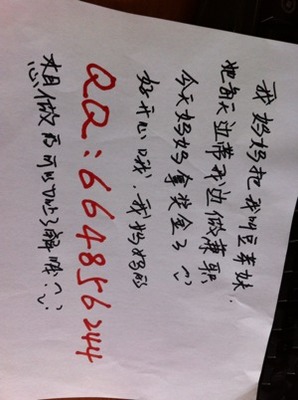 我妈妈把我叫豆芽妹.
她每天边带我边做兼职
今天妈妈拿奖金了
好开心哦,我妈妈的
QQ:664856244
想做的可以加了解哦